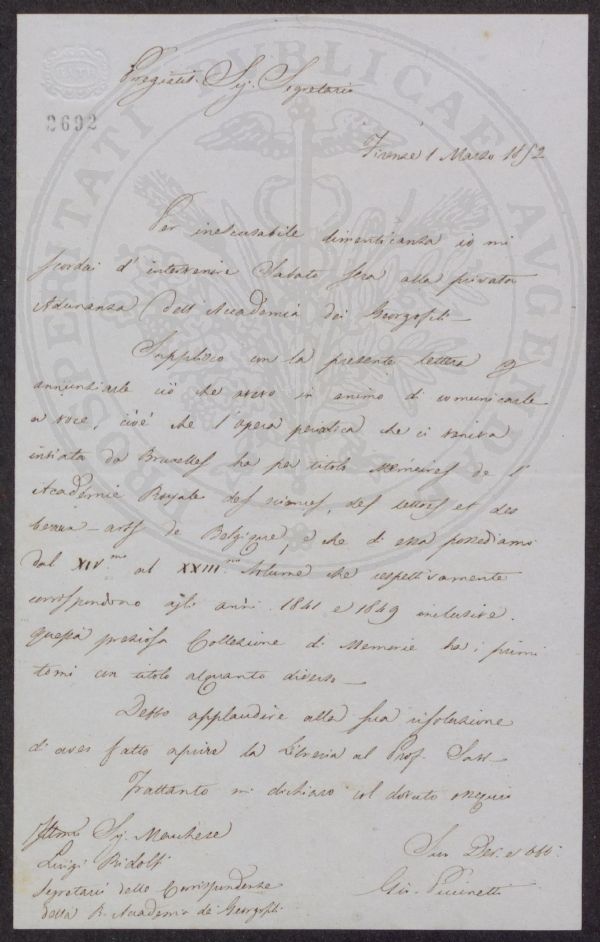 Pregiatis. Sig. Segretario
2692
Firenze 1 Marzo 1852
Per inescusabile dimenticanza io mi
scordai d'intervenire Sabato sera alla privata
Adunanza dell'Accademia dei Georgofili
Supplisco con la presente lettera p
annunziarle ciò che avevo in animo di comunicarle
a voce, cioè che l'opera periodica che ci veniva
inviata da Bruxelles ha per titolo Mémoires de l'
Académie Royale des sciences, des lettres et des
beaux-arts de Belgique, e che di essa possediamo
dal XIV.mo al XXIII.mo Volume che respettivamente
corrispondono agli anni 1841 e 1849 inclusive.
questa preziosa Collezione di Memorie ha i primi
tomi con titolo alquanto diverso
Debbo applaudire alla sua risoluzione
di aver fatto aprire la Libreria al Prof.
Frattanto mi dichiaro col dovuto ossequio
Illmo Sig. Marchese
Luigi Ridolfi
Segretario delle Corrispondenze
della R. Accademia dei Georgofili
Suo Dev. ed Obb.
Gio. Piccinetti
PROSPERITATI PUBLICAE AUGENDAE